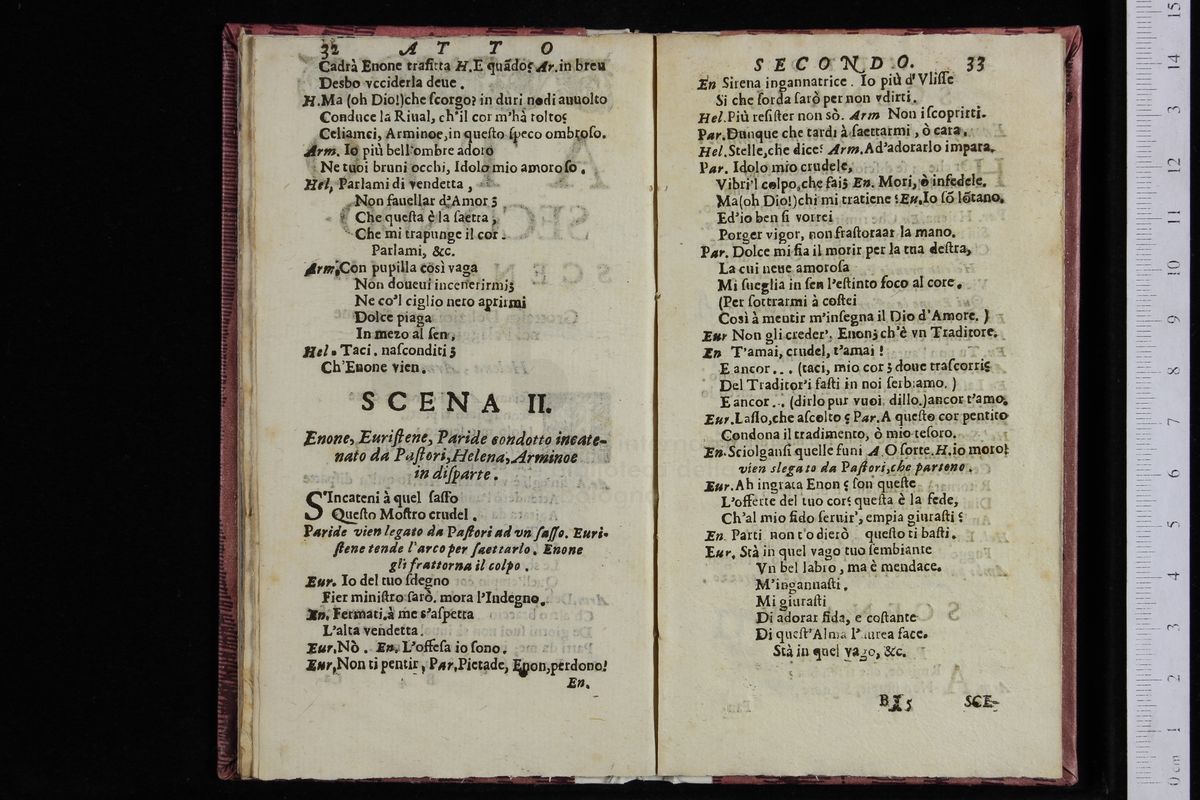 32 ATTO
Cadrà Enone trafitta H.E quãdo? Ar.in breu
Desbo vcciderla deue.
H.Ma (oh Dio!)che ſcorgo? in duri nodi auuolto
Conduce la Riual, ch'il cor m'hà tolto?
Celiamci, Arminoe,in queſto ſpeco ombroſo.
Arm. Io più bell'ombre adoro
Ne tuoi bruni occhi, Idolo mio amoroſo.
Hel, Parlami di vendetta,
Non fauellar d'Amor;
Che queſta è la ſaetta,
Che mi trapunge il cor.
Parlami, &c.
Arm.Con pupilla così vaga
Non doueui incenerirmi;
Ne co'l ciglio nero aprirmi
Dolce piaga
In mezo al ſen,
Hel. Taci. naſconditi;
Ch'Enone vien.
SCENA II.
Enone, Euriſtene, Paride condotto incate-
nato da Paſtori,Helena,Arminoe
in diſparte.
S'Incateni à quel ſaſſo
Queſto Moſtro crudel.
Paride vien legato da Paſtori ad vn ſaſſo. Euri-
ſtene tende l'arco per ſaettarlo. Enone
gli fraſtorna il colpo.
Eur. Io del tuo ſdegno
Fier miniſtro ſarò. mora l'Indegno.
En. Fermati.à me s'aſpetta
L'alta vendetta.
Eur.Nò. En. L'offeſa io ſono.
Eur,Non ti pentir, Par,Pietade, Enon,perdono!
En.
SECONDO. 33
En Sirena ingannatrice. Io più d'Vliſſe
Sì che ſorda ſarò per non vdirti.
Hel.Più reſiſter non sò. Arm Non iſcoprirti.
Par.Dunque che tardi à ſaettarmi, ò cara.
Hel.Stelle,che dice? Arm.Ad'adorarlo impara.
Par. Idolo mio crudele,
Vibri'l colpo,che fai? En. Mori, ò infedele.
Ma(oh Dio!)chi mi tratiene?Eu.Io sõ lõtano.
Ed'io ben ſi vorrei
Porger vigor, non fraſtoraar la mano.
Par. Dolce mi ſia il morir per la tua deſtra,
La cui neue amoroſa
Mi ſueglia in ſen l'eſtinto foco al core.
(Per ſottrarmi à coſtei
Così à mentir m'inſegna il Dio d'Amore.)
Eur Non gli creder', Enon; ch'è vn Traditore.
En T'amai, crudel, t'amai!
E ancor... (taci, mio cor; doue traſcorri?
Del Traditor'i faſti in noi ſerbiamo.)
E ancor... (dirlo pur vuoi, dillo.)ancor t'amo.
Eur.Laſſo,che aſcolto? Par.A queſto cor pentito
Condona il tradimento, ò mio teſoro.
En.Sciolganſi quelle funi A.O ſorte.H.io moro!
vien slegato da Paſtori,che partono.
Eur.Ah ingrata Enon? ſon queſte
L'offerte del tuo cor? queſta è la fede,
Ch'al mio fido ſeruir', empia giuraſti?
En. Parti non t'odierò queſto ti baſti.
Eur. Stà in quel vago tuo ſembiante
Vn bel labro, ma è mendace.
M'ingannaſti,
Mi giuraſti
Di adorar fida, e coſtante
Di queſt'Alma l'aurea face.
Stà in quel vago, &c.
B 5 SCE-